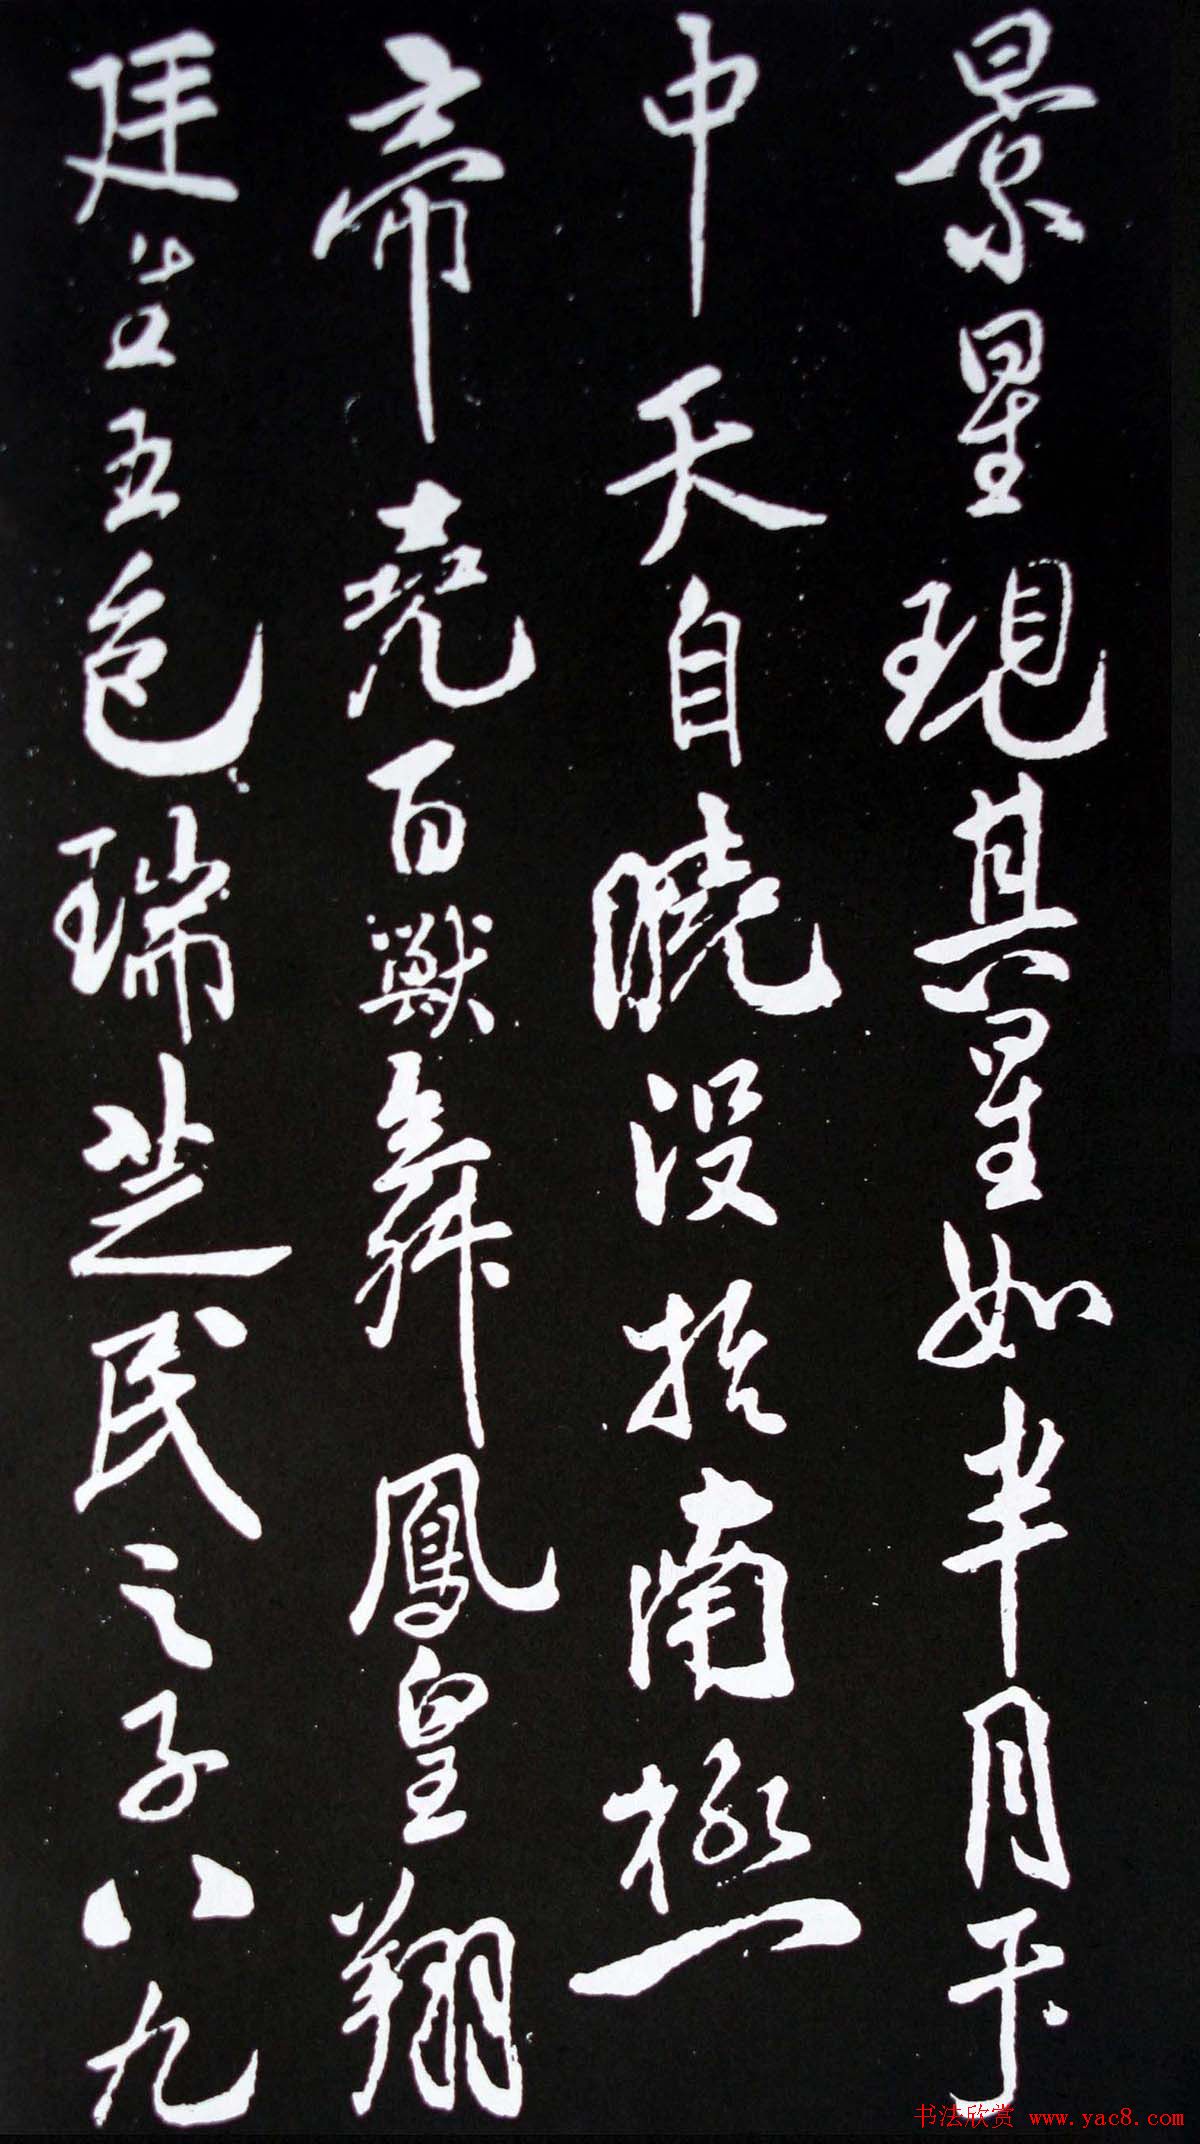 景星現其星如半月下
中天自曉沒扵南極
帝堯百獸舞鳳皇翔
廷五色瑞芝民之子八九
书法欣赏 www.yac8.com